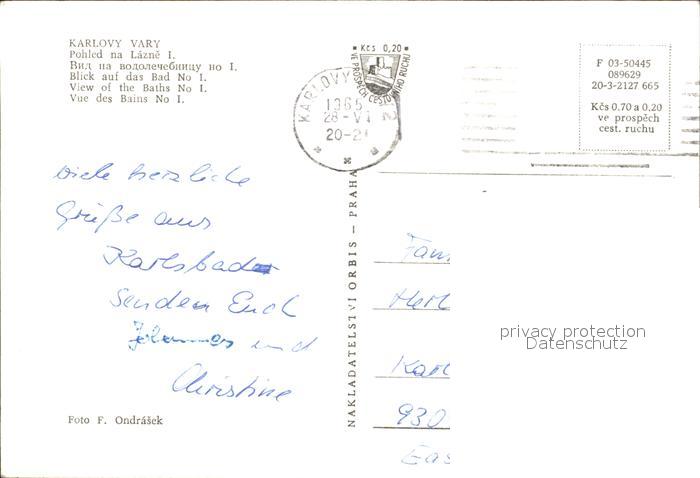 KARLOVY VARY
Pohled na Lázně I.
Вид на водолечебницу но I.
Blick auf das Bad No I.
View of the Baths No I.
Vue des Bains No I.
Kčs 0,20
VE PROSPĚCH CESTOVNÍHO RUCHU
KARLOVY VARY 2
1965
28-VI
20-21
F 03-50445
089629
20-3-2127 665
Kčs 0.70 a 0,20
ve prospěch
cest. ruchu
Viele herzliche
Grüße aus
Karlsbad
senden Euch
Johannes und
Christine
Foto F. Ondrášek
NAKLADATELSTVÍ ORBIS – PRAHA
Fam
Herb
Karl
930
Eas
privacy protection
Datenschutz